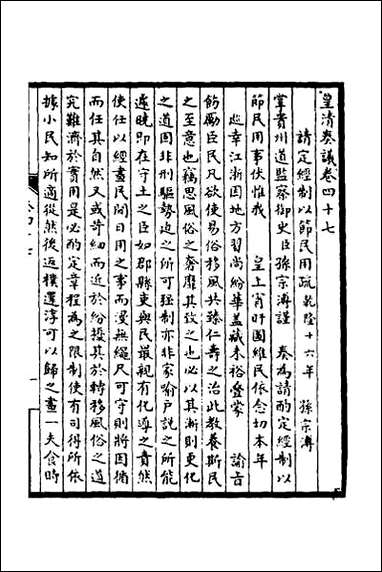 皇清奏議卷四十七
請定經制以節民用疏乾隆十六年 孫宗溥
掌貴州道監察御史臣孫宗溥謹 奏為請酌定經制以
節民用事伏惟我 皇上宵旰圖維民依念切本年
巡幸江浙因地方習尚紛華蓋藏未裕疊蒙 諭旨
飭勵臣民凡欲使易俗移風共臻仁壽之治此教養斯民
之至意也竊思風俗之奢靡其致之也必以其漸則更化
之道固非刑驅勢迫之所可强制亦非家喻戶說之所能
遽曉即在守土之臣如郡縣吏與民最親有化導之責然
使任以經畫民間日用之事而漫無繩尺可守則將因循
而任其自然又或苛細而近於紛擾其於轉移風俗之道
究難濟於實用是必酌定章程為之限制使有司得所依
據小民知所適從然後返樸還淳可以歸之畫一夫食時